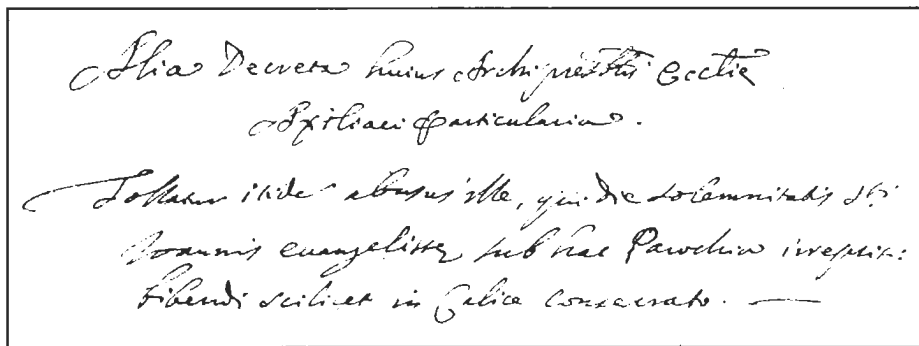 Alia Decreta huius Archipresbtis Ecctie
Axiliaci Particularia.
Tollatur itide abusus ille, qui die solemnitatis Sti
Joannis evangelistę sub hac Parochia irrepsit:
bibendi scilicet in Calice consecrato. —